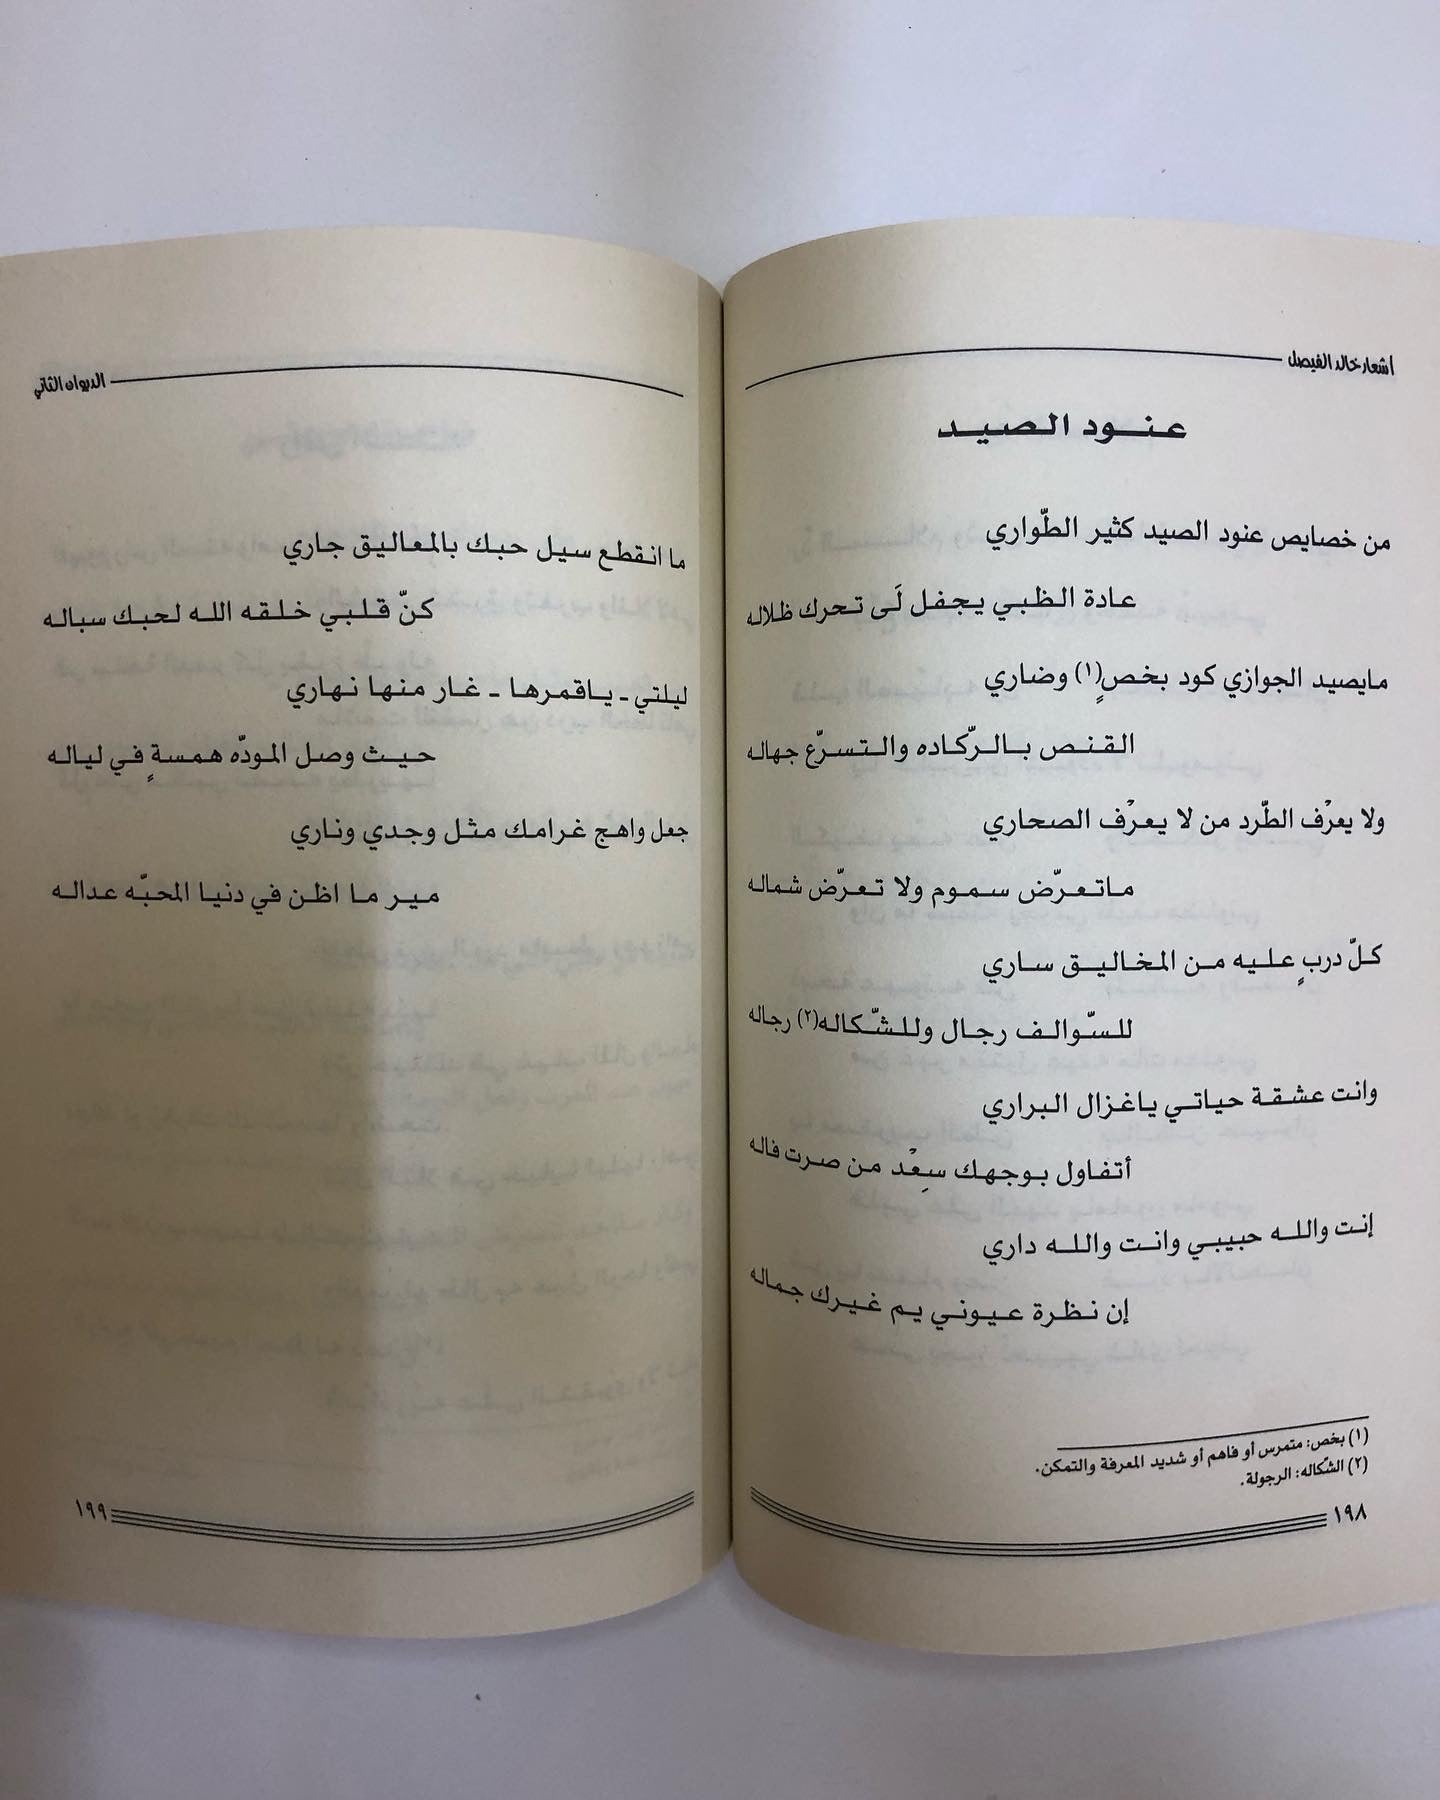 أشعار خالد الفيصل
عنود الصيد
من خصايص عنود الصيد كثير الطّواري
عادة الظبي يجفل لَى تحرك ظلاله
مايصيد الجوازي كود بخصٍ(١) وضاري
القنص بالرّكاده والتسرّع جهاله
ولا يعرْف الطّرد من لا يعرْف الصحاري
ماتعرّض سموم ولا تعرّض شماله
كلّ دربٍ عليه من المخاليق ساري
للسّوالف رجال وللشّكاله(٢) رجاله
وانت عشقة حياتي ياغزال البراري
أتفاول بوجهك سِعْد من صرت فاله
إنت والله حبيبي وانت والله داري
إن نظرة عيوني يم غيرك جماله
(١) بخص: متمرس أو فاهم أو شديد المعرفة والتمكن.
(٢) الشّكاله: الرجولة.
١٩٨
الديوان الثاني
ما انقطع سيل حبك بالمعاليق جاري
كنّ قلبي خلقه الله لحبك سباله
ليلتي - ياقمرها - غار منها نهاري
حيث وصل المودّه همسةٍ في لياله
جعل واهج غرامك مثل وجدي وناري
مير ما اظن في دنيا المحبّه عداله
١٩٩